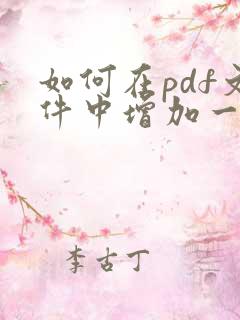 如何在pdf文
件中增加一
李古丁